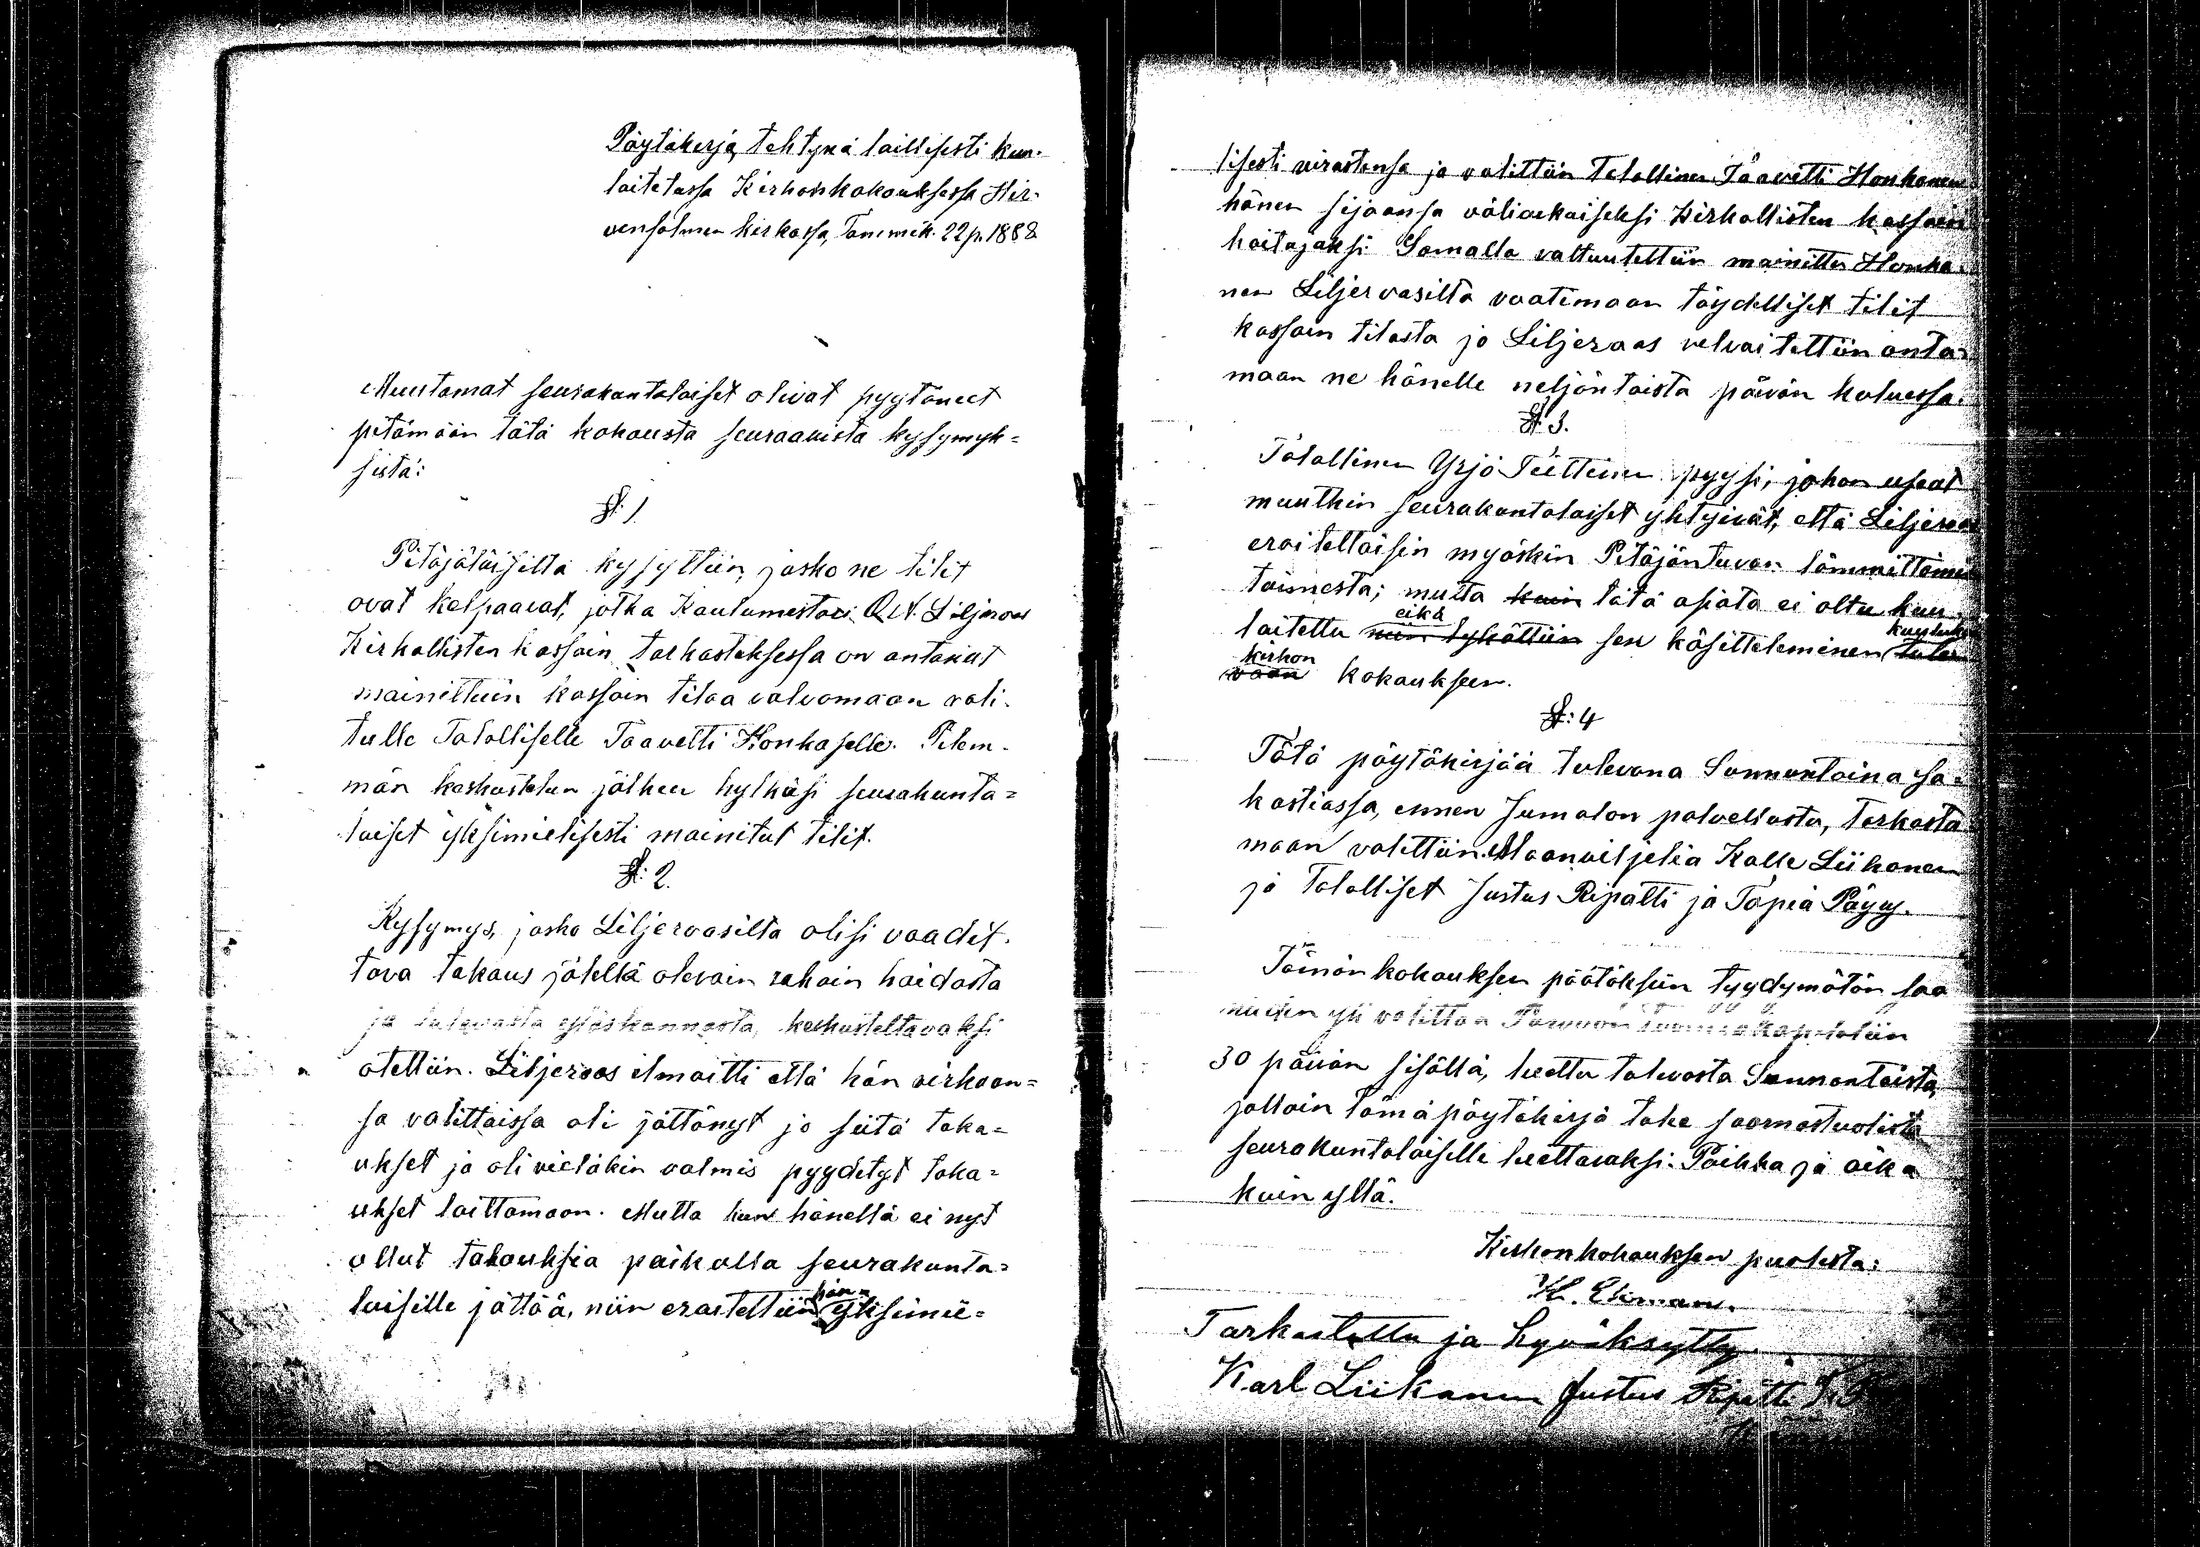 Pöytäkirja, tehtynä laillisesti kuu-
lutetussa Kirkonkokouksessa Hir-
vensalmen kirkossa, Tammik. 22 p. 1888
Muutamat seurakuntalaiset olivat pyytäneet
pitämään tätä kokousta seuraavista kysymyk=
sistä:
§: 1.
Pitäjäläisiltä kysyttiin, josko ne tilit
ovat kelpaavat, jotka Kanttori O. N. Liljeroos
Kirkollisten kassain tarkastuksessa on antanut
mainittuin kassain tilaa valvomaan vali-
tulle Talolliselle Taavetti Honkaselle. Pitem-
män keskustelun jälkeen hylkäsi seurakunta=
laiset yksimielisesti mainitut tilit.
§: 2.
Kysymys, josko Liljeroosilta olisi vaadit-
tava takaus jälellä olevain rahain hoidosta
ja tulevasta ylöskannosta, keskusteltavaksi
otettiin. Liljeroos ilmoitti että hän virkaan=
sa valittaissa oli jättänyt jo siitä taka=
ukset ja oli vieläkin valmis pyydetyt taka=
ukset laittamaan. Mutta kun hänellä ei nyt
ollut takauksia paikalla seurakunta=
laisille jättää, niin eroitettiin hän yksimie=
lisesti virastansa ja valittiin Talollinen Taavetti Honkanen
hänen sijaansa väliaikaiseksi Kirkollisten kassain
hoitajaksi. Samalla valtuutettiin mainittu Honka-
nen Liljeroosilta vaatimaan täydelliset tilit
kassain tilasta ja Liljeroos velvoitettiin anta=
maan ne hänelle neljäntoista päivän kuluessa.
§: 3.
Talollinen Yrjö Teittinen pyysi, johon useat
muutkin seurakuntalaiset yhtyivät, että Liljeroos
eroitettaisiin myöskin Pitäjäntuvan lämmittämis
toimesta; mutta kuin tätä asiata ei oltu kuu-
lutettu eikä niin lykättiin sen käsitteleminen
kirkon kokoukseen.
§: 4
Tätä pöytäkirjää tulevana Sunnuntaina sa=
kastiassa, ennen Jumalan palvellusta, tarkasta
maan valittiin Maanviljeliä Kalle Liikanen
ja Talolliset Justus Ripatti ja Tapia Pöyry.
Tämän kokouksen päätöksiin tyydymätön saa
niiden yli valittaa Porvoon Tuomiokapituliin
30 päivän sisällä, luettu tulevasta Sunnuntaista,
jolloin tämä pöytäkirja tulee saarnastuolista
seurakuntalaisille luettavaksi. Paikka ja aika
kuin yllä.
Kirkonkokouksen puolesta:
Ekman.
Tarkastettu ja hyväksytty.
Karl Liikanen Justus Ripatti T. P.